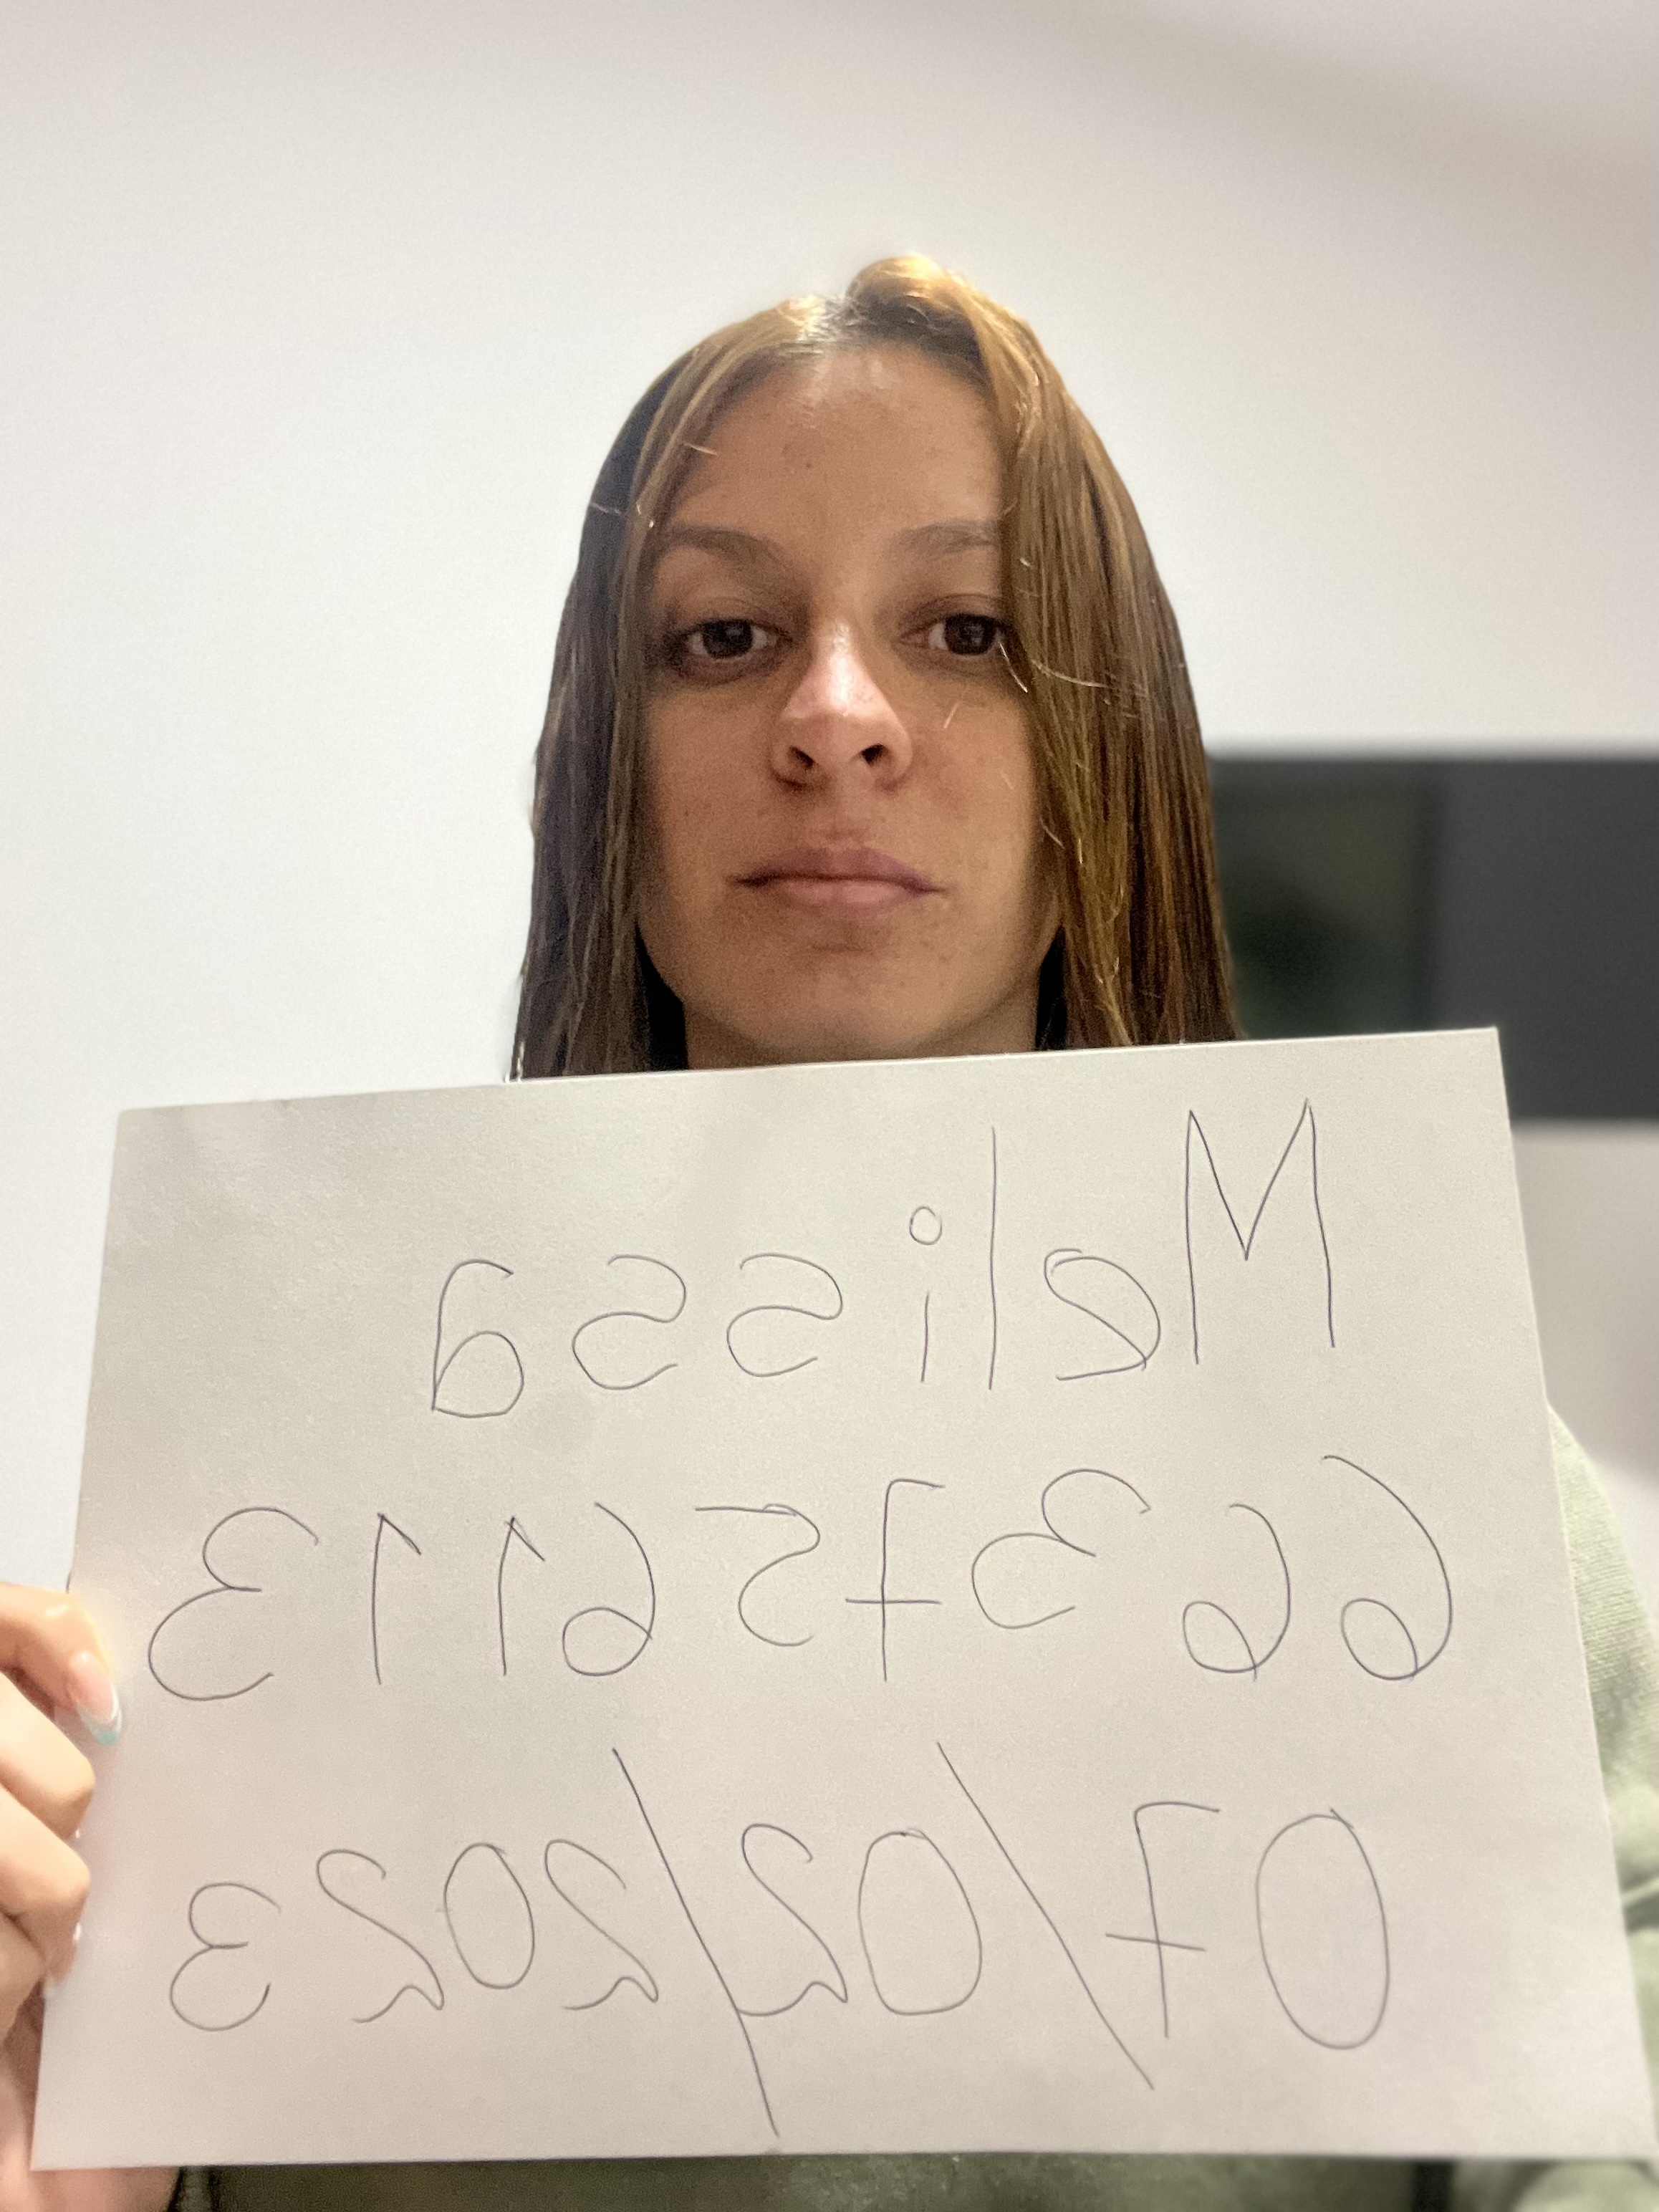 Melissa
663756113
07/02/2023